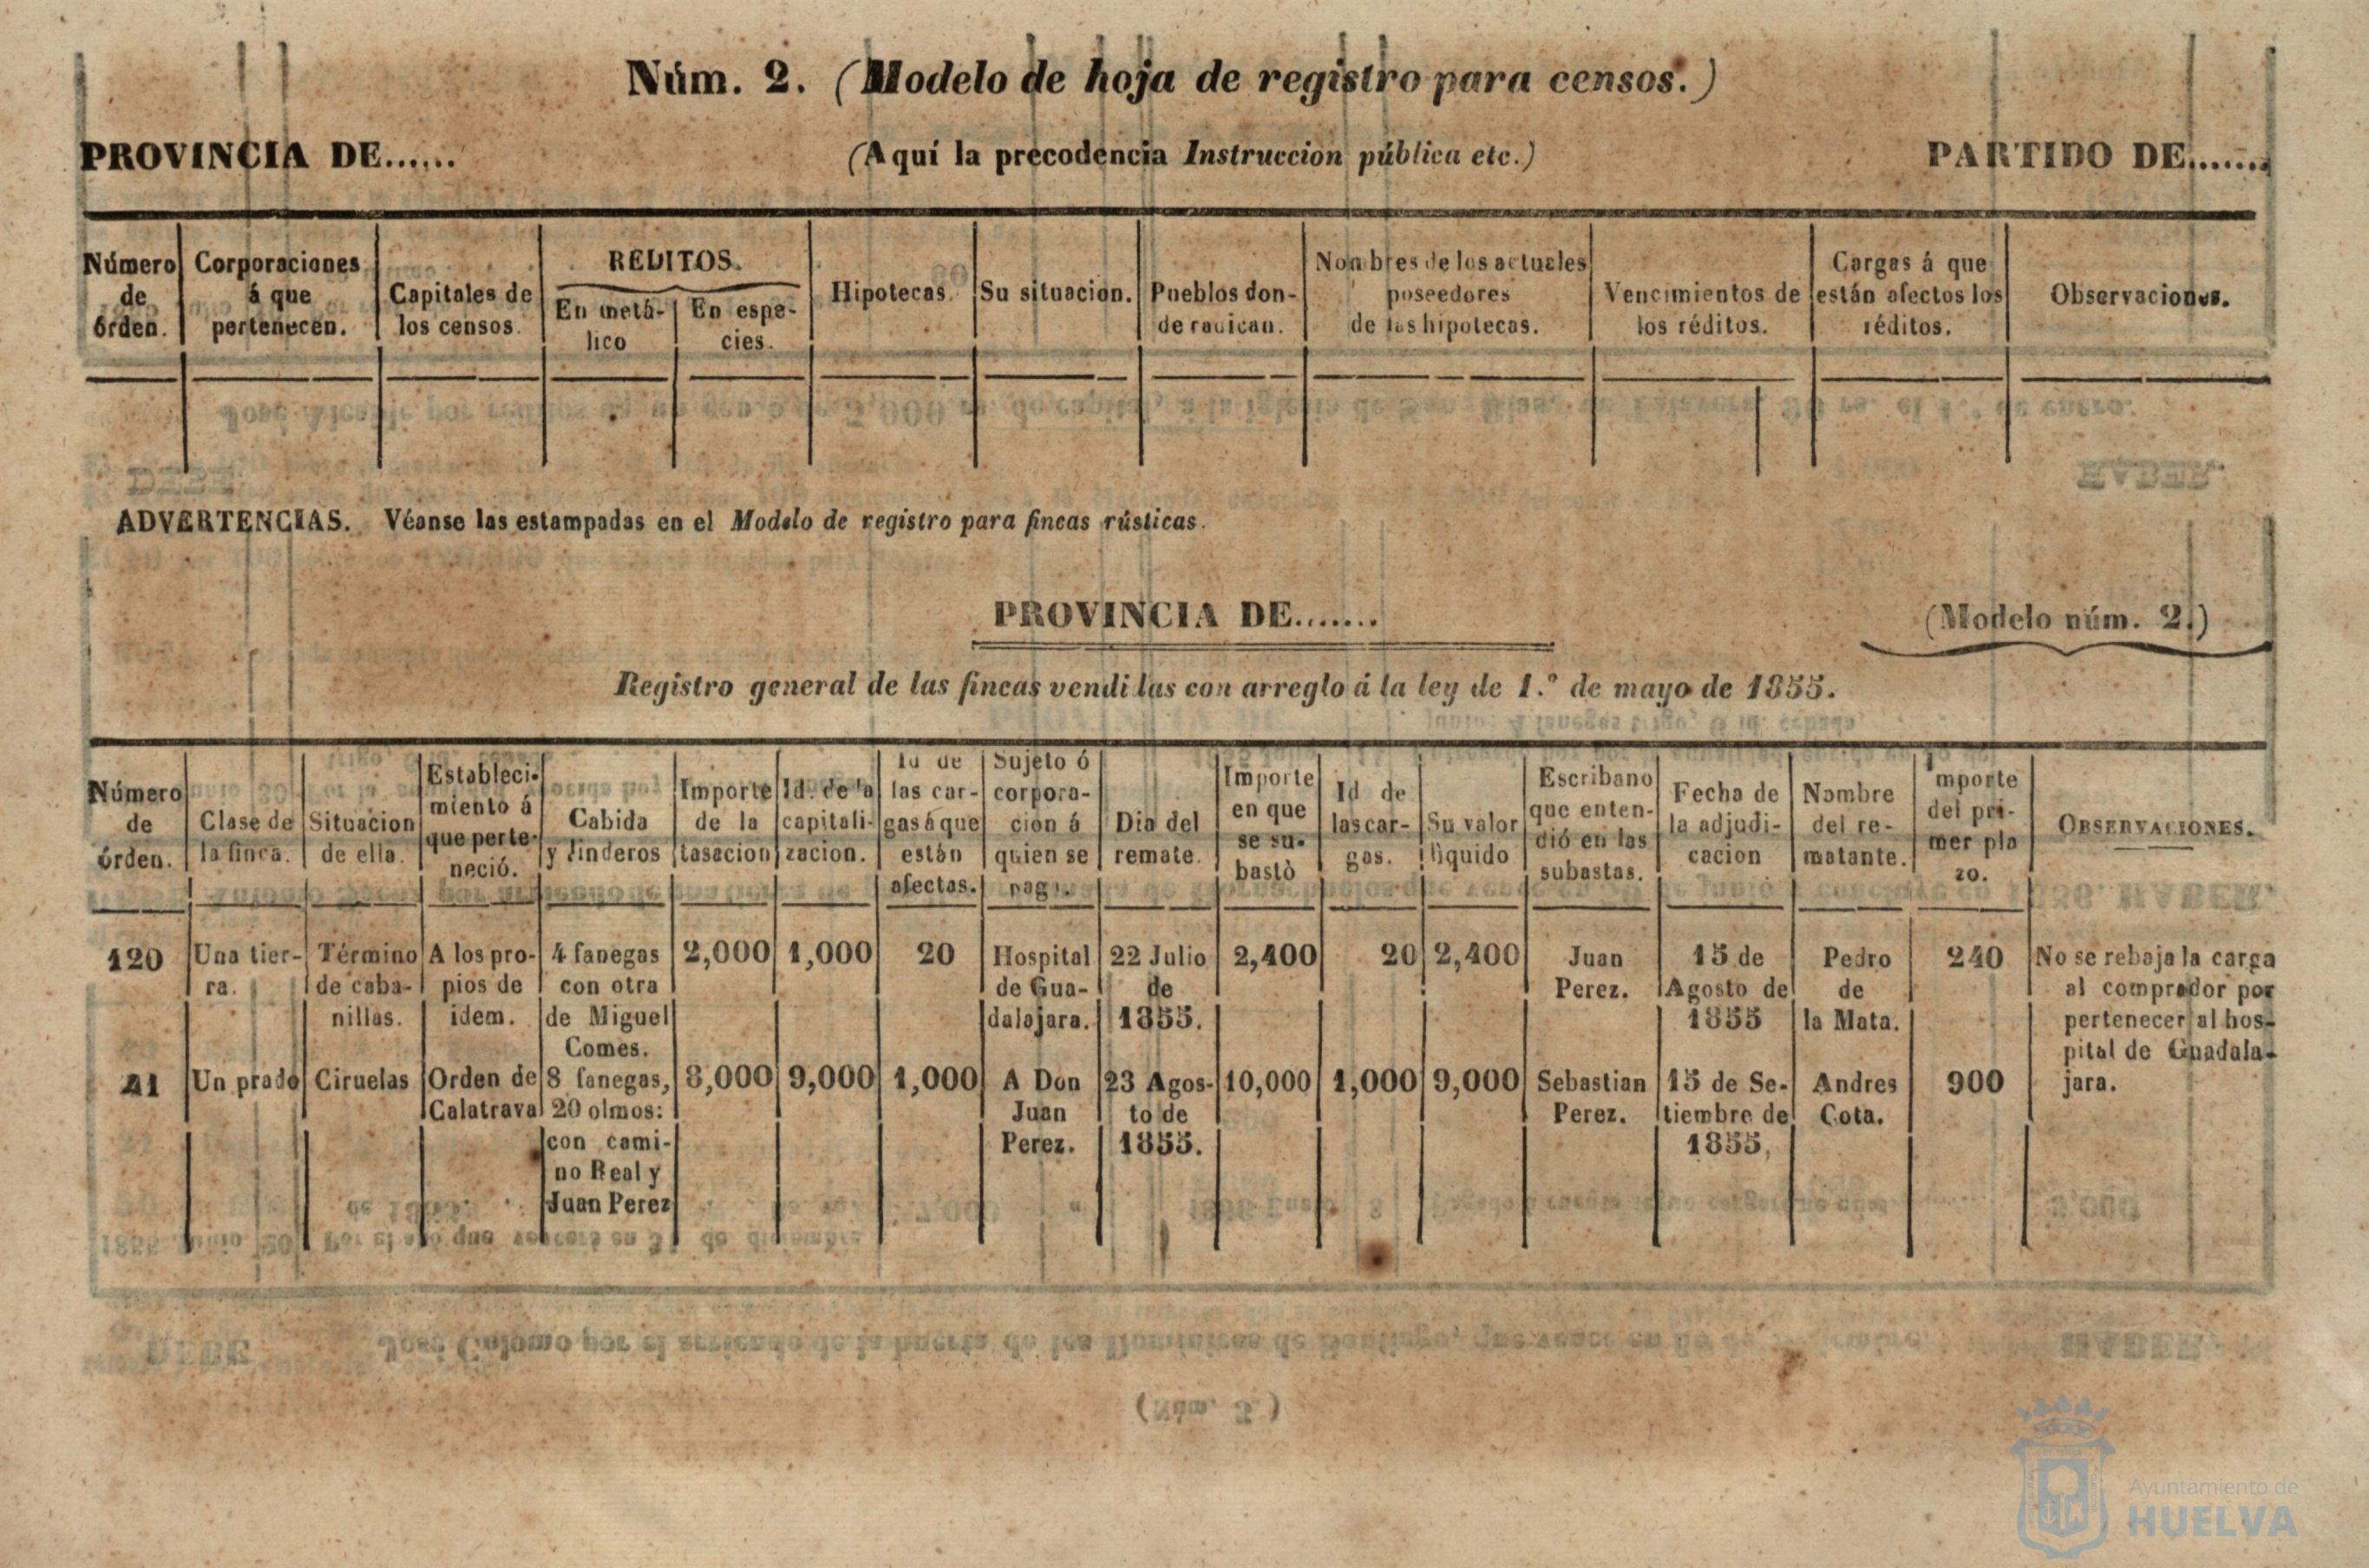 Núm. 2. (Modelo de hoja de registro para censos.)
PROVINCIA DE......
(Aquí la precodencia Instruccion pública etc.)
PARTIDO DE.......
Número de órden.
Corporaciones á que pertenecen.
Capitales de los censos.
REDITOS.
En metá-lico
En espe-cies.
Hipotecas.
Su situacion.
Pueblos don-de radican.
Nombres de los actuales poseedores de las hipotecas.
Vencimientos de los réditos.
Cargas á que están afectos los réditos.
Observaciones.
ADVERTENCIAS. Véanse las estampadas en el Modelo de registro para fincas rústicas.
PROVINCIA DE.......
(Modelo núm. 2.)
Registro general de las fincas vendidas con arreglo á la ley de 1.º de mayo de 1855.
Número de órden.
Clase de la finca.
Situacion de ella.
Estableci-miento á que perte-neció.
Cabida y linderos
Importe de la tasacion
Id. de la capitali-zacion.
Id de las car-gas á que están afectas.
Sujeto ó corpora-cion á quien se paga.
Dia del remate.
Importe en que se su-bastò
Id de las car-gas.
Su valor líquido
Escribano que enten-dió en las subastas.
Fecha de la adjudi-cacion
Nombre del re-matante.
Importe del pri-mer pla zo.
OBSERVACIONES.
120
Una tier-ra.
Término de caba-nillas.
A los pro-pios de idem.
4 fanegas con otra de Miguel Comes.
2,000
1,000
20
Hospital de Gua-dalajara.
22 Julio de 1855.
2,400
20
2,400
Juan Perez.
15 de Agosto de 1855
Pedro de la Mata.
240
No se rebaja la carga al comprador por pertenecer al hos-pital de Guadala-jara.
41
Un prado
Ciruelas
Orden de Calatrava
8 fanegas, 20 olmos: con cami-no Real y Juan Perez
8,000
9,000
1,000
A Don Juan Perez.
23 Agos-to de 1855.
10,000
1,000
9,000
Sebastian Perez.
15 de Se-tiembre de 1855,
Andres Cota.
900
Ayuntamiento de
HUELVA